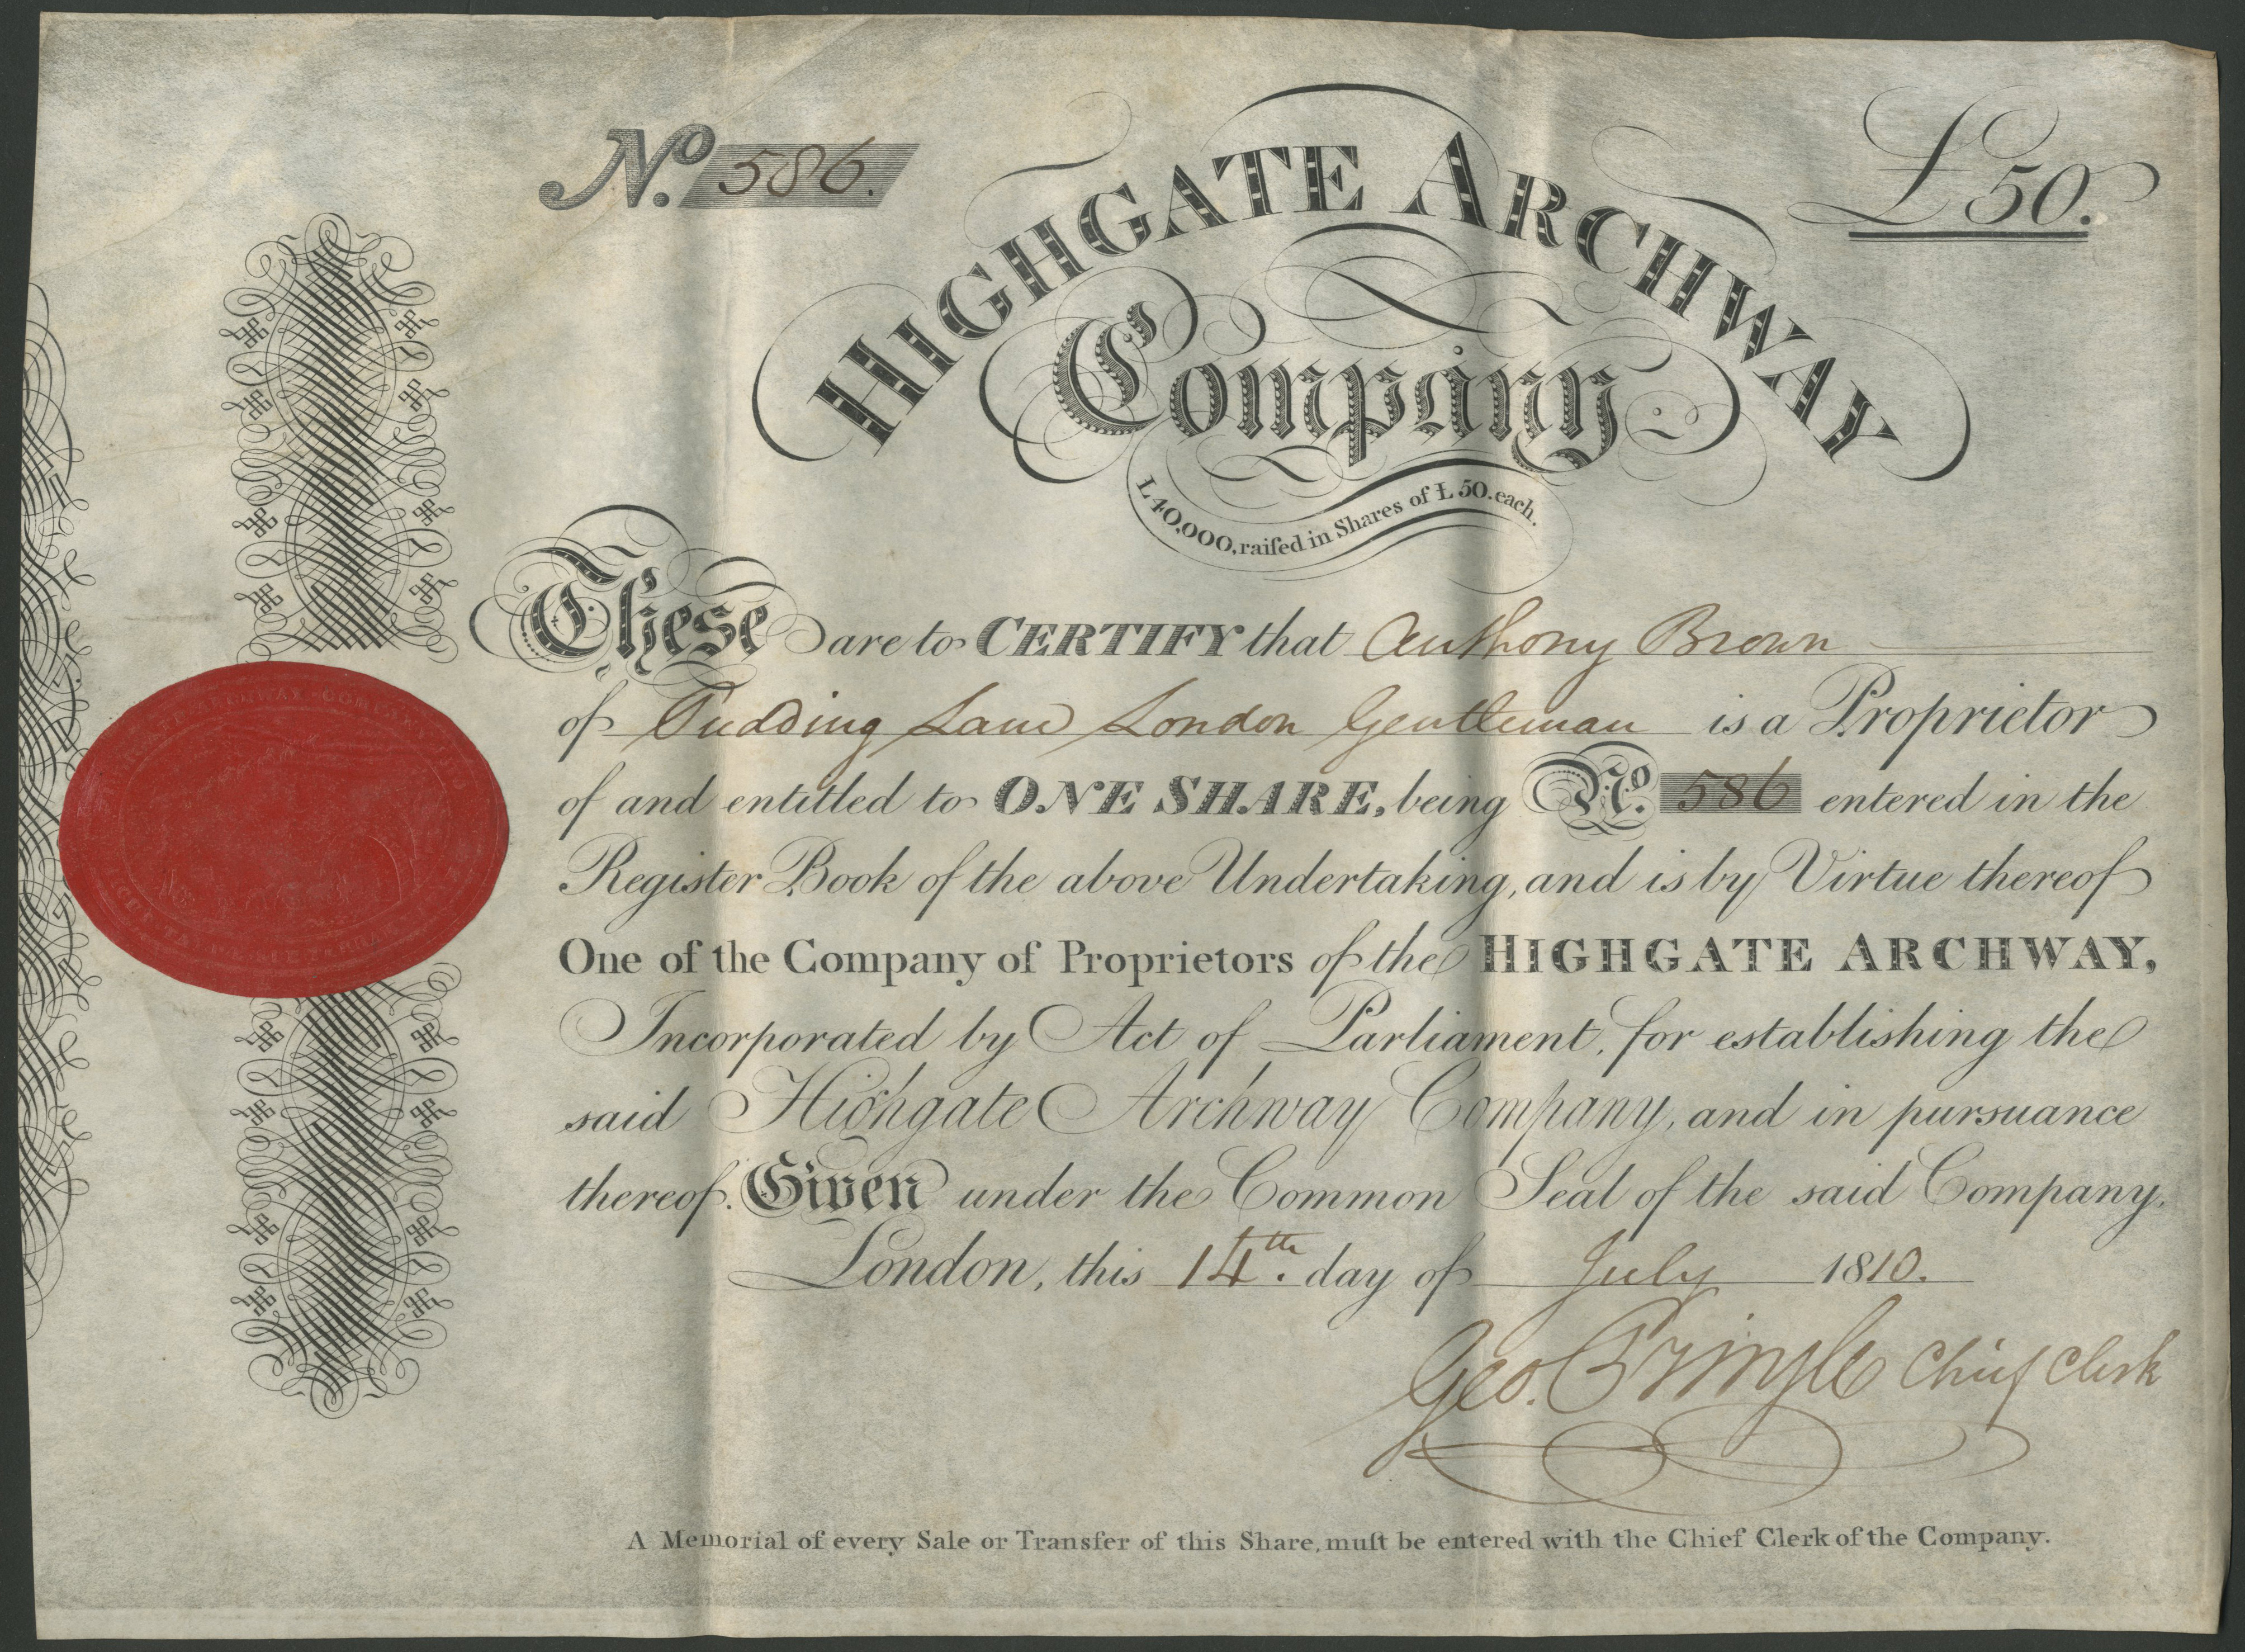 No. 586.
£50.
HIGHGATE ARCHWAY
Company.
L40,000, raiſed in Shares of Ł50. each.
These are to CERTIFY that Anthony Brown
of Pudding Lane London Gentleman is a Proprietor
of and entitled to ONE SHARE, being No. 586 entered in the
Register Book of the above Undertaking, and is by Virtue thereof
One of the Company of Proprietors of the HIGHGATE ARCHWAY,
Incorporated by Act of Parliament, for establishing the
said Highgate Archway Company, and in pursuance
thereof. Given under the Common Seal of the said Company.
London, this 14th. day of July 1810.
Geo. Pringle Chief Clerk
A Memorial of every Sale or Transfer of this Share, muſt be entered with the Chief Clerk of the Company.
HIGHGATE ARCHWAY COMPANY